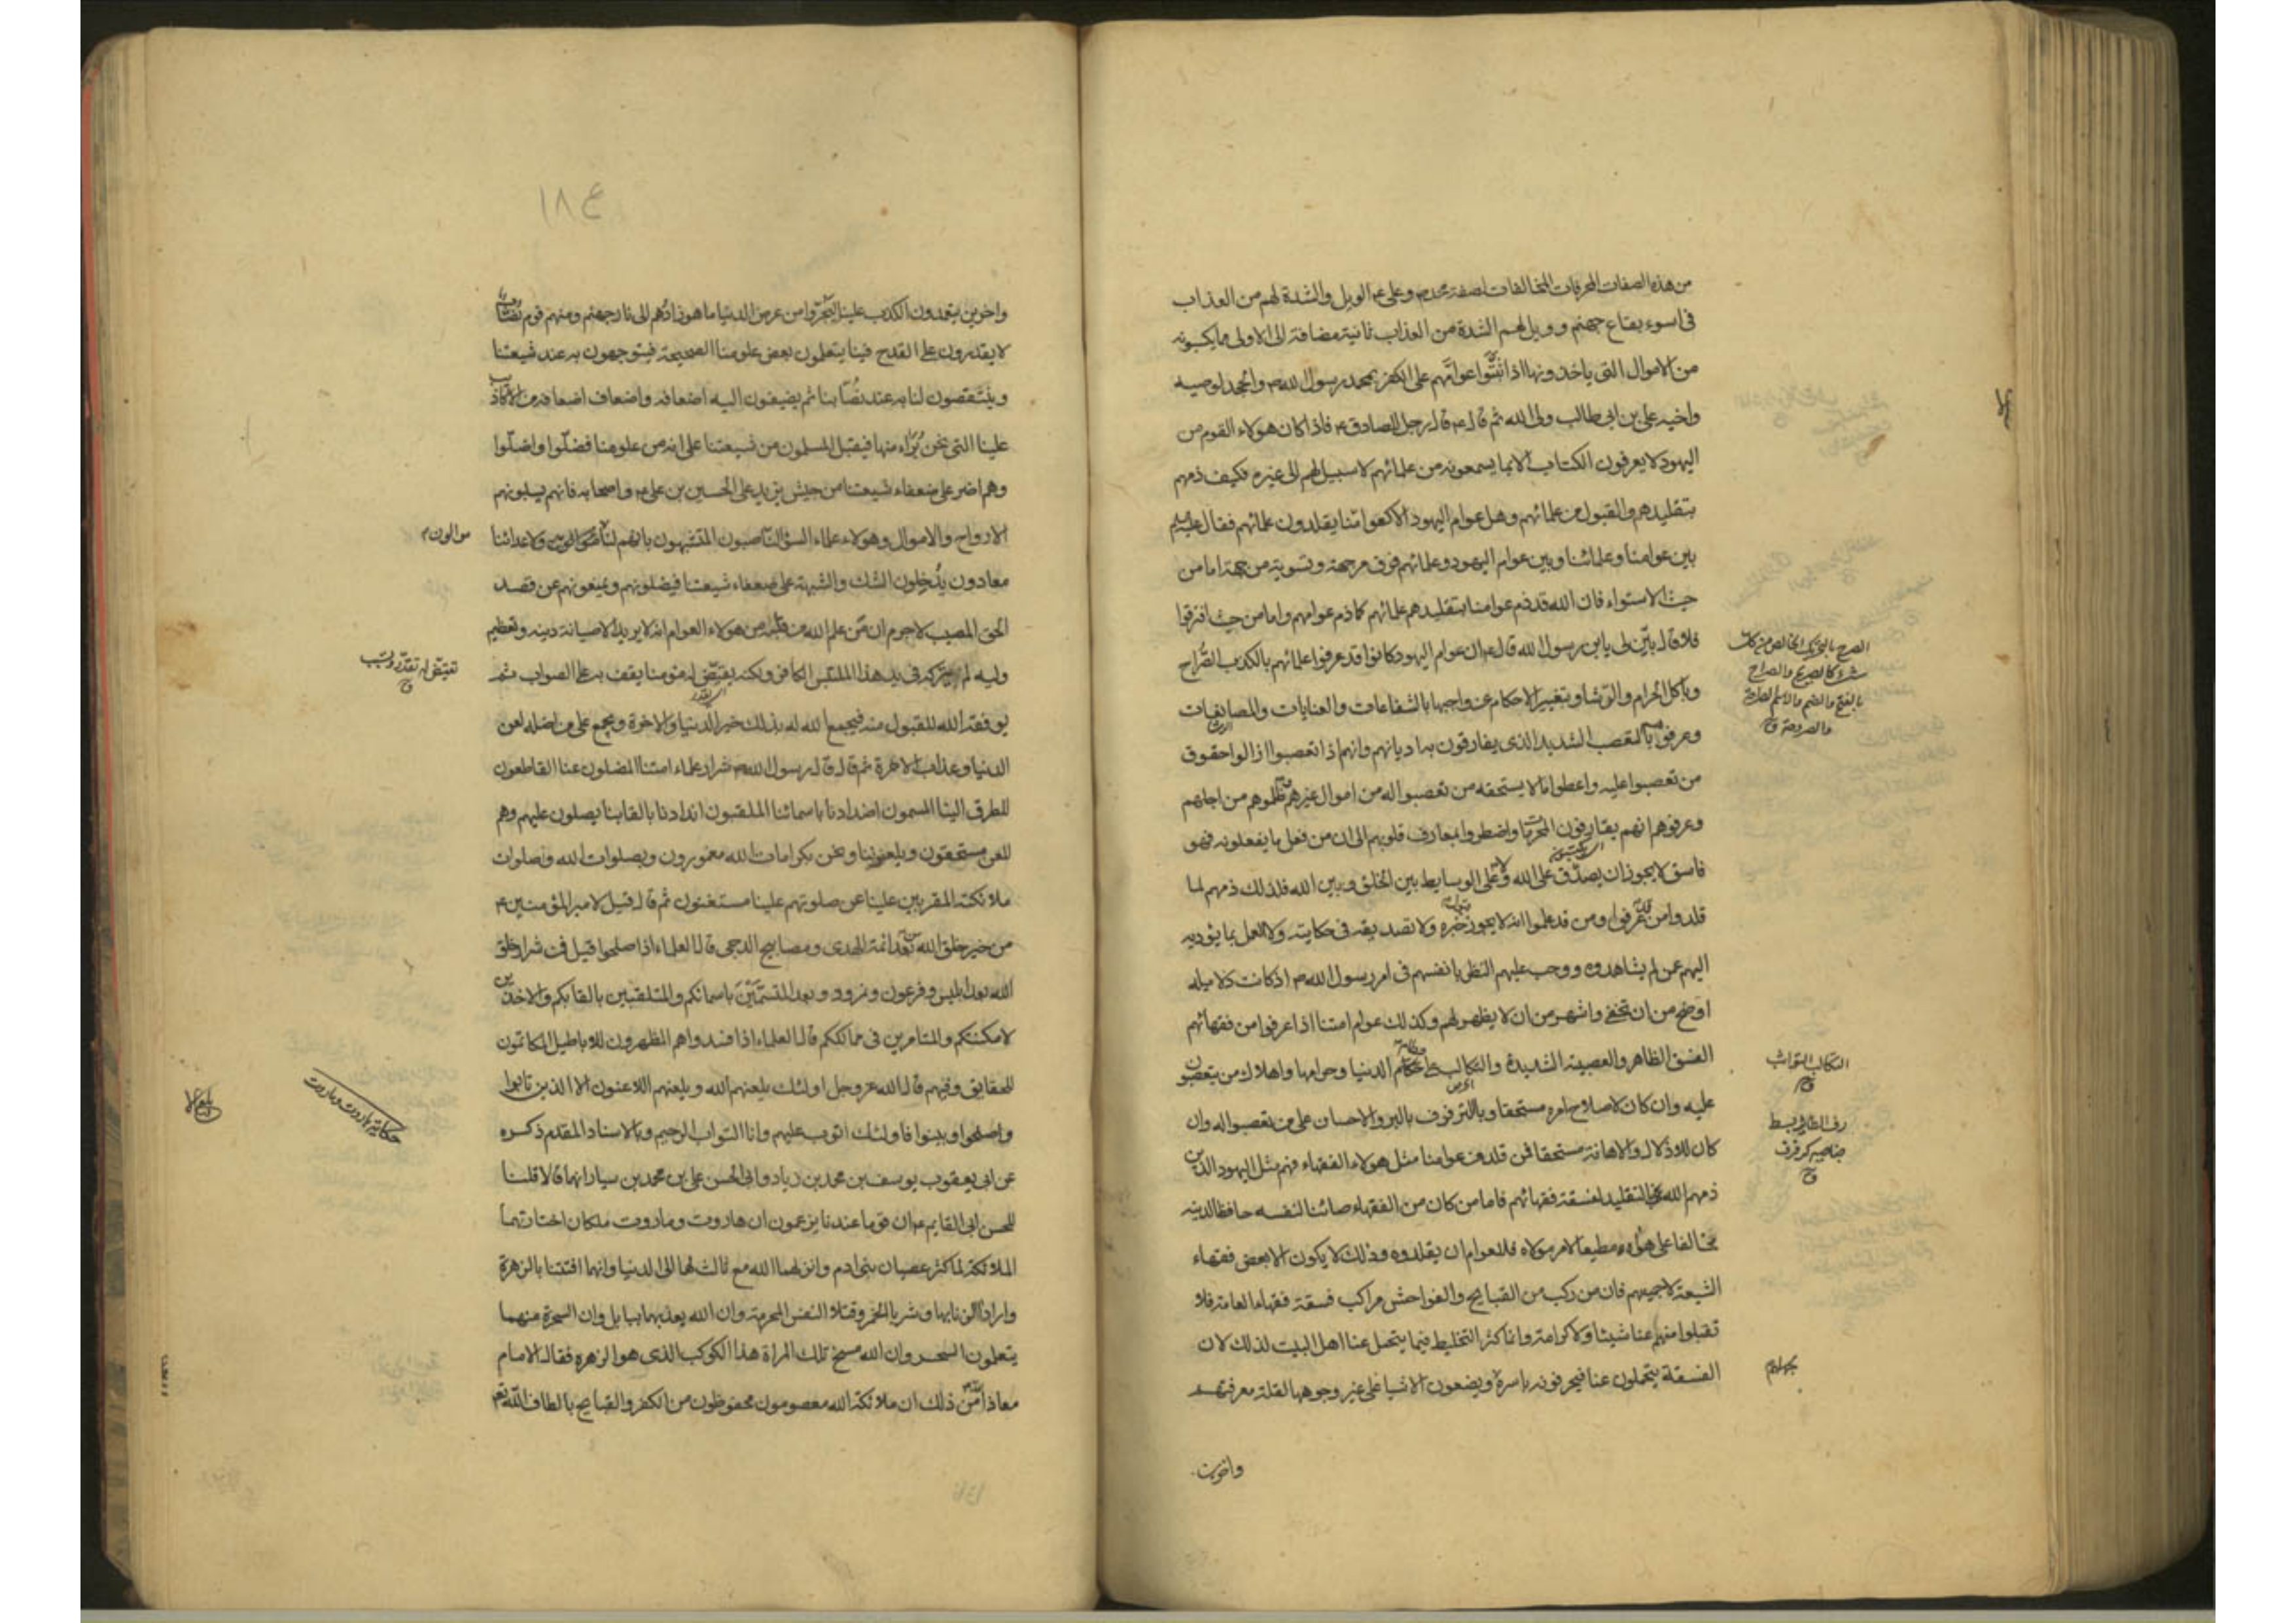 من هذه الصفات المحرفات المخالفات لصفة محمد ص وعلى ع الويل والشدة لهم من العذاب
فى اسوء بقاع جهنم وويل لهم الشدة من العذاب ثانية مضافة الى الاولى مما يكسبونه
من الاموال التى ياخذونها اذا ثبتوا عوامهم على الكفر بمحمد رسول الله ص والجحد لوصيه
واخيه على بن ابى طالب ولى الله ثم قال ع قال رجل للصادق ع فاذا كان هولاء القوم من
اليهود لا يعرفون الكتاب الا بما يسمعونه من علمائهم لا سبيل لهم الى غيره فكيف ذمهم
بتقليدهم والقبول من علمائهم وهل عوام اليهود الا كعوامنا يقلدون علمائهم فقال عليه السلم
بين عوامنا وعلمائنا وبين عوام اليهود وعلمائهم فرق من جهة وتسوية من جهة اما من
حيث الاستواء فان الله قد ذم عوامنا بتقليدهم علمائهم كما ذم عوامهم واما من حيث افترقوا
فلا قال بين لى يابن رسول الله قال ع ان عوام اليهود كانوا قد عرفوا علمائهم بالكذب الصراح
وباكل الحرام والرشا وبتغيير الاحكام عن واجبها بالشفاعات والعنايات والمصانعات
وعرفوهم بالتعصب الشديد الذى يفارقون به اديانهم وانهم اذا تعصبوا ازالوا حقوق
من تعصبوا عليه واعطوا ما لا يستحقه من تعصبوا له من اموال غيرهم وظلموهم من اجلهم
وعرفوهم انهم يقارفون المحرمات واضطروا بمعارف قلوبهم الى ان من فعل ما يفعلونه فهو
فاسق لا يجوز ان يصدق على الله ولا على الوسايط بين الخلق وبين الله فلذلك ذمهم لما
قلدوا من قد عرفوا ومن قد علموا انه لا يجوز قبول خبره ولا تصديقه فى حكايته ولا العمل بما يؤديه
اليهم عمن لم يشاهدوه ووجب عليهم النظر بانفسهم فى امر رسول الله ص اذ كانت دلايله
اوضح من ان تخفى واشهر من ان لا يظهر لهم وكذلك عوام امتنا اذا عرفوا من فقهائهم
الفسق الظاهر والعصبية الشديدة والتكالب على حطام الدنيا وحرامها واهلاك من يتعصبون
عليه وان كان لاصلاح امره مستحقا وبالترفوف بالبر والاحسان على من تعصبوا له وان
كان للاذلال والاهانة مستحقا فمن قلد من عوامنا مثل هولاء الفقهاء فهم مثل اليهود الذين
ذمهم الله بالتقليد لفسقة فقهائهم فاما من كان من الفقهاء صائنا لنفسه حافظا لدينه
مخالفا على هواه مطيعا لامر مولاه فللعوام ان يقلدوه وذلك لا يكون الا بعض فقهاء
الشيعة لا جميعهم فان من ركب من القبايح والفواحش مراكب فسقة فقهاء العامة فلا
تقبلوا منهم عنا شيئا ولا كرامة وانما كثر التخليط فيما يتحمل عنا اهل البيت لذلك لان
الفسقة يتحملون عنا فيحرفونه باسره ويضعون الاشيا على غير وجوهها لقلة معرفتهم
واخرين
الصرح بالتحريك الخالص من كل
شىء كالصريح والصراح
بالفتح والضم والاسم الصراحة
والصروحة ق
التكالب التواثب
ق
رف الطاير بسط
جناحيه كرفرف
ق
بجهلهم
١٨٤
واخرين يتعمدون الكذب علينا ليجروا من عرض الدنيا ما هو زادهم الى نار جهنم ومنهم قوم نصاب
لا يقدرون على القدح فينا يتعلمون بعض علومنا الصحيحة فيتوجهون به عند شيعتنا
وينتقصون لنا به عند نصابنا ثم يضيفون اليه اضعافه واضعاف اضعافه من الاكاذيب
علينا التى نحن براء منها فيقبل المسلمون من شيعتنا على انه من علومنا فضلوا واضلوا
وهم اضر على ضعفاء شيعتنا من جيش يزيد على الحسين بن على ع واصحابه فانهم يسلبونهم
الارواح والاموال وهولاء علماء السؤ الناصبون المتشبهون بانهم لنا موالون ولاعدائنا
معادون يدخلون الشك والشبهة على ضعفاء شيعتنا فيضلونهم ويمنعونهم عن قصد
الحق المصيب لا جرم ان من علم الله من قلبه من هولاء العوام انه لا يريد الا صيانة دينه وتعظيم
وليه لم يتركه فى يد هذا الملتبس الكافر ولكنه يقيض له مؤمنا يقف به على الصواب ثم
يوفقه الله للقبول منه فيجمع الله له بذلك خير الدنيا والاخرة ويجمع على من اضله لعن
الدنيا وعذاب الاخرة ثم قال قال رسول الله ص شرار علماء امتنا المضلون عنا القاطعون
للطرق الينا المسمون اضدادنا باسمائنا الملقبون اندادنا بالقابنا يصلون عليهم وهم
للعن مستحقون ويلعنونا ونحن بكرامات الله مغمورون وبصلوات الله وصلوات
ملائكته المقربين علينا عن صلوتهم علينا مستغنون ثم قال قيل لامير المؤمنين ع
من خير خلق الله بعد ائمة الهدى ومصابيح الدجى قال العلماء اذا صلحوا قيل فمن شرار خلق
الله بعد ابليس وفرعون ونمرود وبعد المتسمين باسمائكم والمتلقبين بالقابكم والاخذين
لامكنتكم والمتامرين فى ممالككم قال العلماء اذا فسدوا هم المظهرون للاباطيل الكاتمون
للحقايق وفيهم قال الله عز وجل اولئك يلعنهم الله ويلعنهم اللاعنون الا الذين تابوا
واصلحوا وبينوا فاولئك اتوب عليهم وانا التواب الرحيم وبالاسناد المقدم ذكره
عن ابى يعقوب يوسف بن محمد بن زياد وابى الحسن على بن محمد بن سيار انهما قالا قلنا
للحسن ابى القايم ع ان قوما عندنا يزعمون ان هاروت وماروت ملكان اختارتهما
الملائكة لما كثر عصيان بنى ادم وانزلهما الله مع ثالث لهما الى الدنيا وانهما افتتنا بالزهرة
وارادا الزنا بها وشربا الخمر وقتلا النفس المحرمة وان الله يعذبهما ببابل وان السحرة منهما
يتعلمون السحر وان الله مسخ تلك المراة هذا الكوكب الذى هو الزهرة فقال الامام
معاذ الله من ذلك ان ملائكة الله معصومون محفوظون من الكفر والقبايح بالطاف الله تع
موالون
تقيض له تقدر وتسبب
ق
حكاية هاروت وماروت